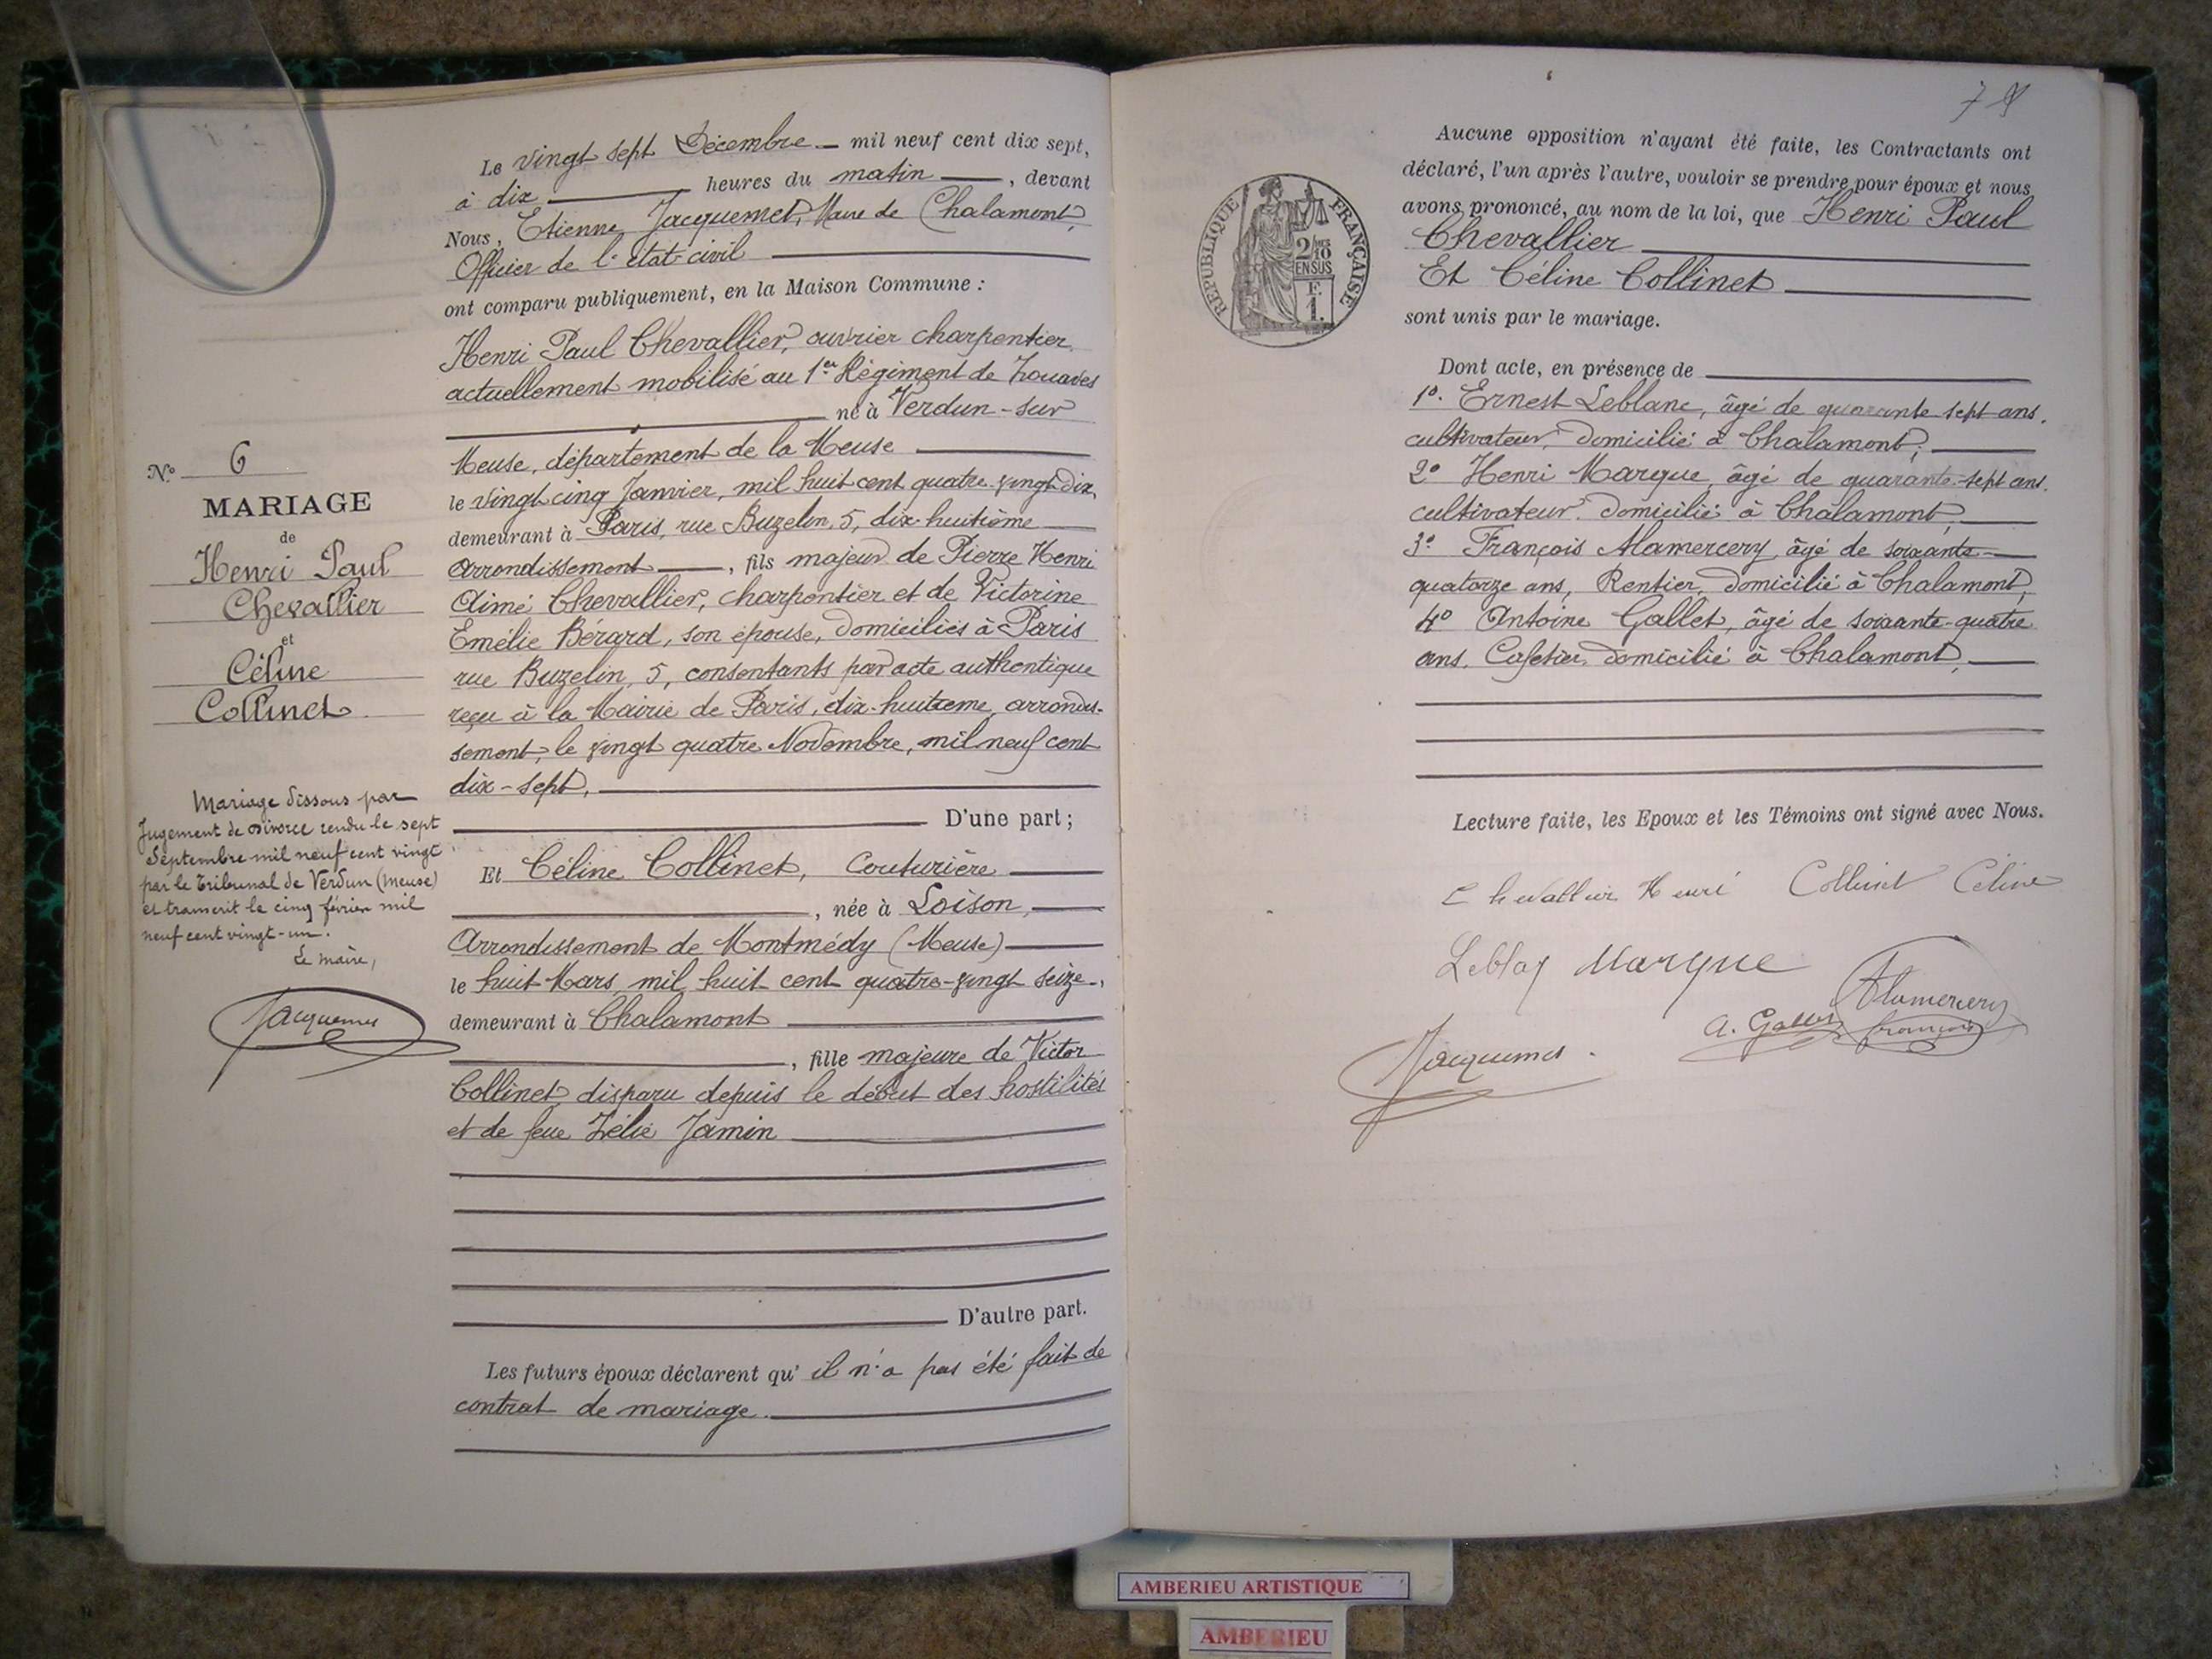 Le vingt sept Décembre — mil neuf cent dix sept,
à dix — heures du matin —, devant
Nous, Etienne Jacquemet, Maire de Chalamont,
Officier de l'état-civil
ont comparu publiquement, en la Maison Commune :
Henri Paul Chevallier, ouvrier charpentier
actuellement mobilisé au 1er Régiment de Zouaves
né à Verdun-sur
Meuse, département de la Meuse
le vingt cinq Janvier, mil huit cent quatre-vingt dix,
demeurant à Paris, rue Buzelin, 5, dix-huitième
Arrondissement —, fils majeur de Pierre Henri
Aimé Chevallier, charpentier et de Victorine
Emélie Bérard, son épouse, domiciliés à Paris
rue Buzelin, 5, consentants par acte authentique
reçu à la Mairie de Paris, dix-huitième, arrondis-
sement, le vingt quatre Novembre, mil neuf cent
dix-sept,
D'une part ;
Et Céline Collinet, Couturière
, née à Loison,
Arrondissement de Montmédy (Meuse)
le huit Mars, mil huit cent quatre-vingt seize,
demeurant à Chalamont
, fille majeure de Victor
Collinet, disparu depuis le début des hostilités
et de feue Zélie Jamin
D'autre part.
Les futurs époux déclarent qu'il n'a pas été fait de
contrat de mariage.
N° 6
MARIAGE
de
Henri Paul
Chevallier
et
Céline
Collinet
Mariage dissous par
Jugement de divorce rendu le sept
Septembre mil neuf cent vingt
par le Tribunal de Verdun (Meuse)
et transcrit le cinq février mil
neuf cent vingt-un.
Le maire,
Jacquemet
REPUBLIQUE FRANÇAISE
2/10
EN SUS
F.
1.
Aucune opposition n'ayant été faite, les Contractants ont
déclaré, l'un après l'autre, vouloir se prendre pour époux et nous
avons prononcé, au nom de la loi, que Henri Paul
Chevallier
Et Céline Collinet
sont unis par le mariage.
Dont acte, en présence de
1°. Ernest Leblanc, âgé de quarante sept ans,
cultivateur, domicilié à Chalamont,
2° Henri Marque, âgé de quarante-sept ans,
cultivateur, domicilié à Chalamont,
3° François Alamercery, âgé de soixante-
quatorze ans, Rentier, domicilié à Chalamont,
4° Antoine Gallet, âgé de soixante-quatre
ans, Cafetier, domicilié à Chalamont,
Lecture faite, les Epoux et les Témoins ont signé avec Nous.
Chevallier Henri Collinet Céline
Marque
Alamercery
A. Gallet françois
Jacquemet
AMBERIEU ARTISTIQUE
AMBERIEU